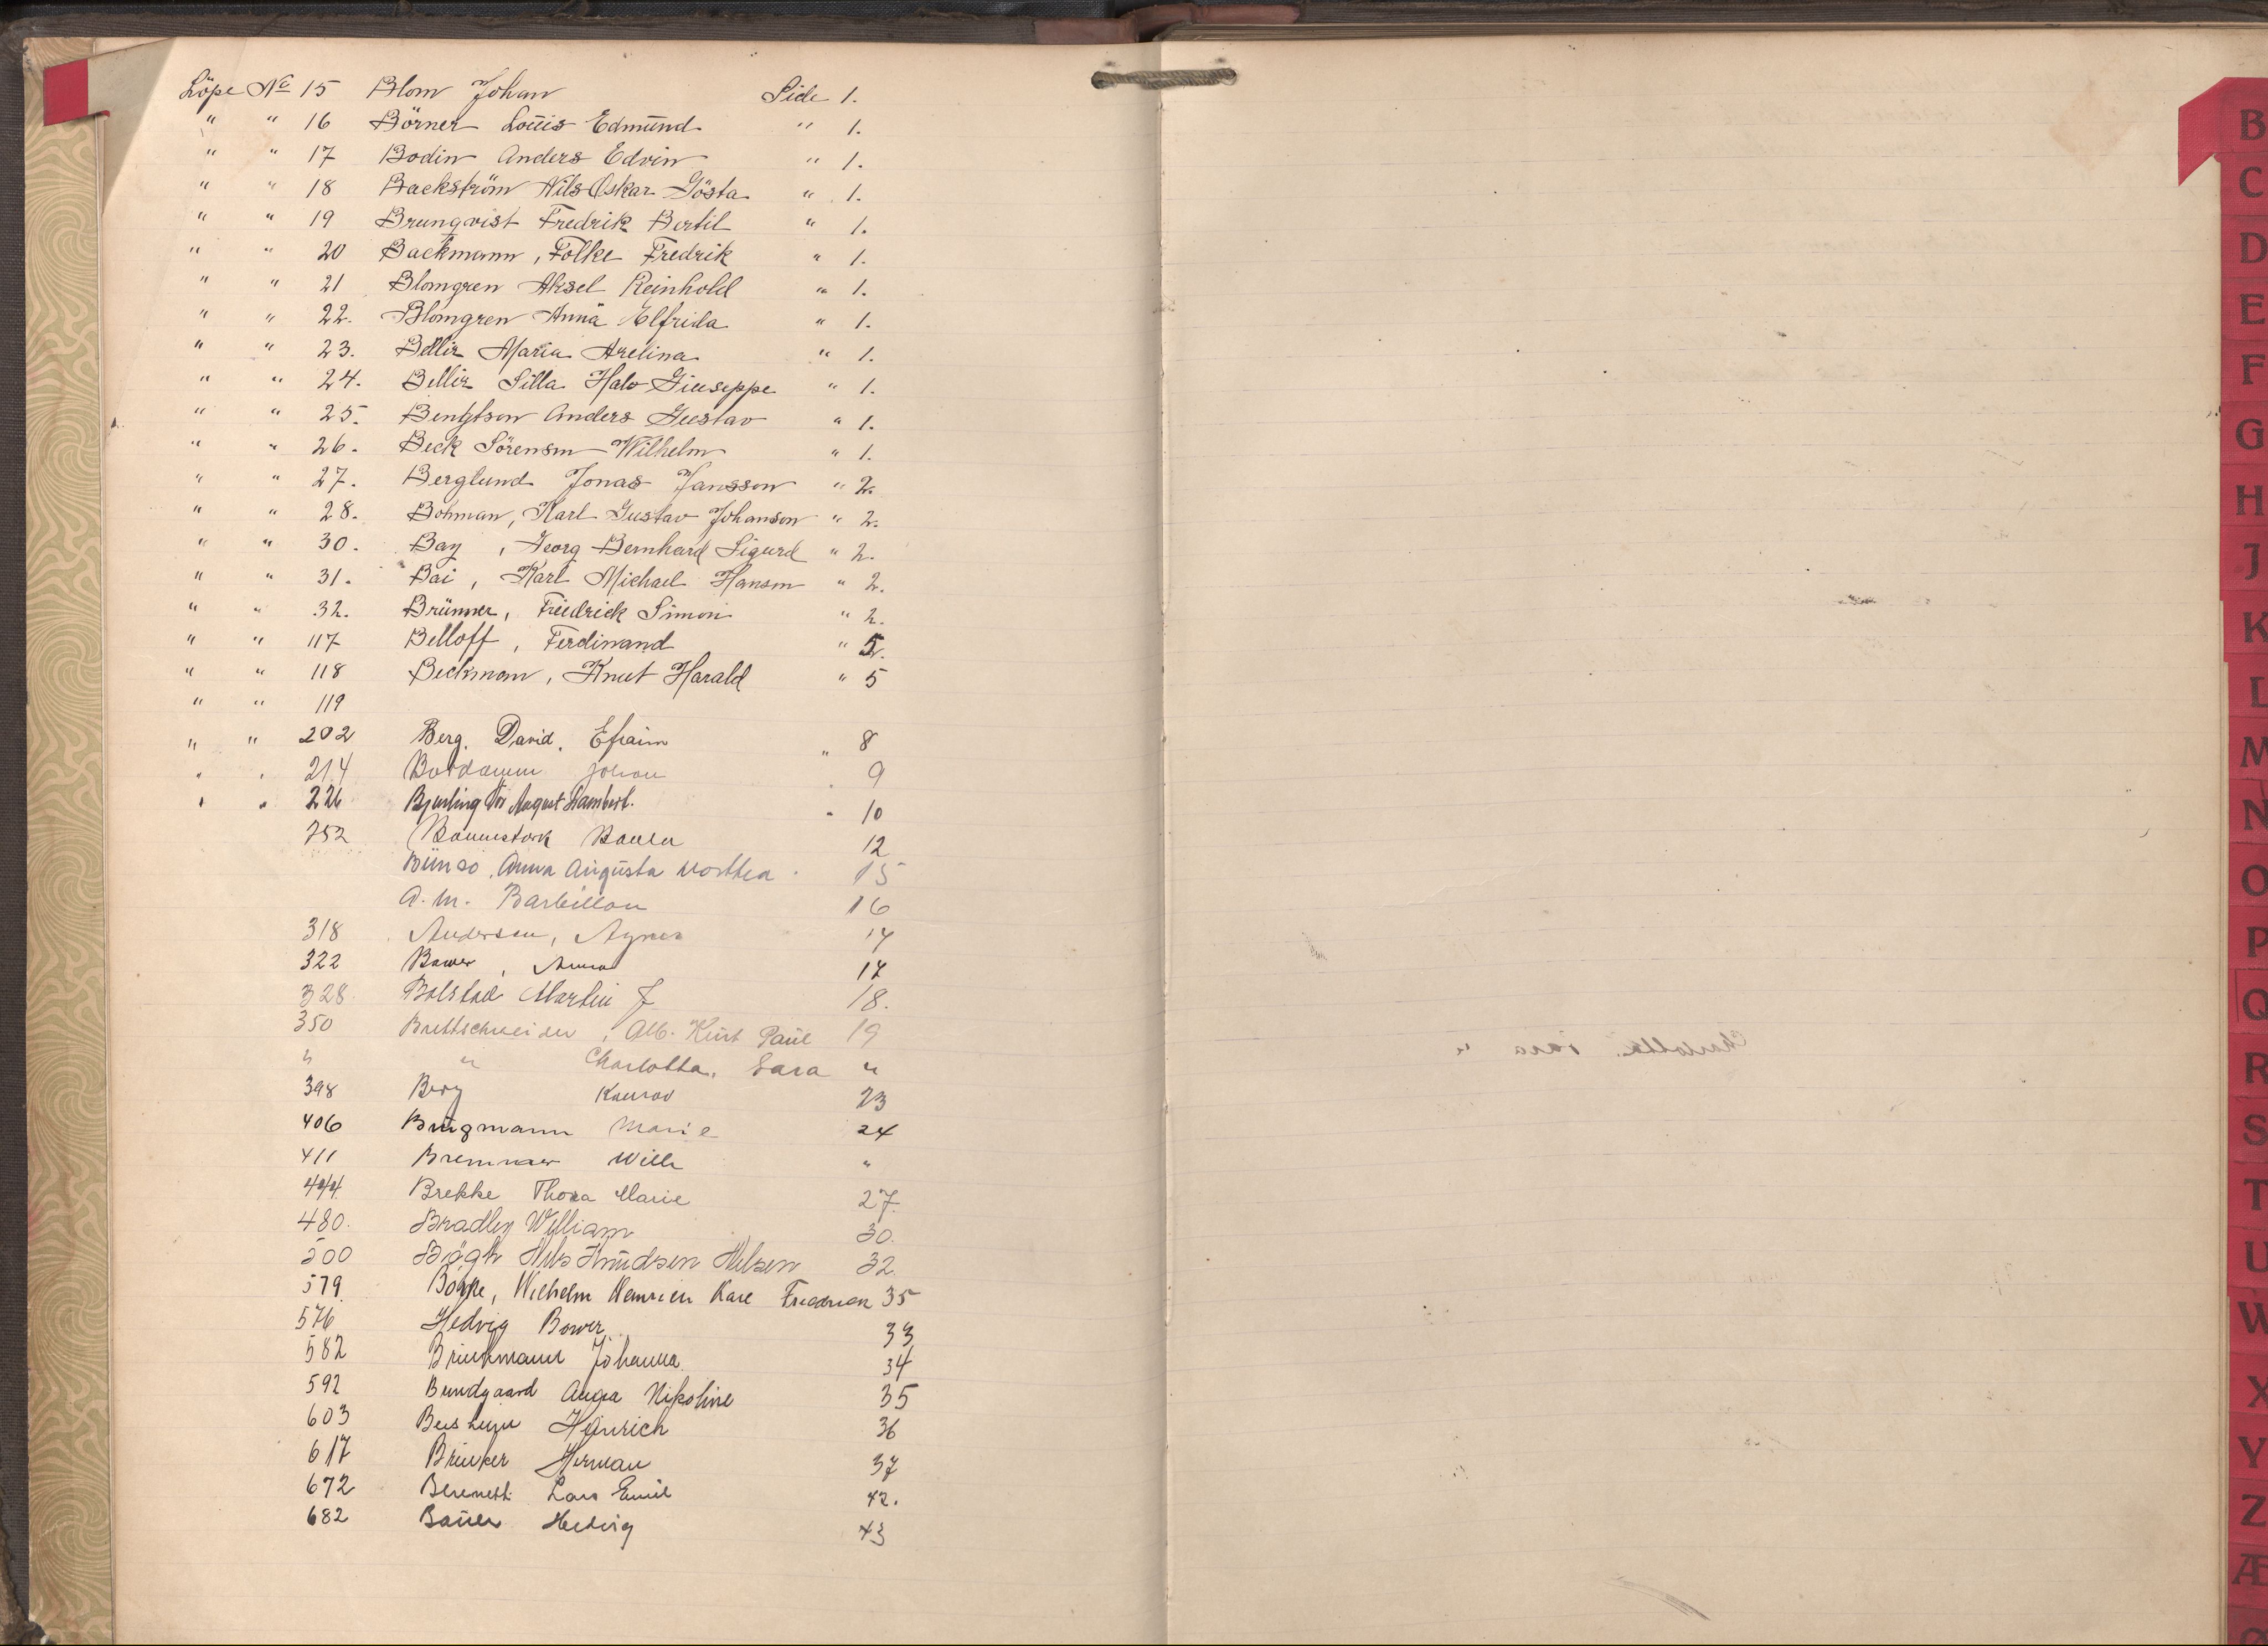 Löpe No 15 Blom Johan Side 1.
" " 16 Börner Louis Edmund " 1.
" " 17 Bodin Anders Edvin " 1.
" " 18 Backström Nils Oskar Gösta " 1.
" " 19 Brunqvist Fredrik Bertil " 1.
" " 20 Backmann, Folke Fredrik " 1.
" " 21 Blomgren Aksel Reinhold " 1.
" " 22. Blomgren Anna Elfrida " 1.
" " 23. Bellir Maria Avelina " 1.
" " 24. Bellir Silla Halv Giuseppe " 1.
" " 25. Bengtson Anders Gustav " 1.
" " 26. Beck Sörensen Wilhelm " 1.
" " 27. Berglund Jonas Jansson " 2.
" " 28. Bohman, Karl Gustav Johanson " 2.
" " 30. Bay, Georg Bernhard Sigurd " 2.
" " 31. Bai, Karl Michael Hansen " 2.
" " 32. Brünner, Friedrick Simon " 2.
" " 117 Belloff, Ferdinand " 5.
" " 118 Beckman, Knut Harald " 5
" " 119
" " 202 Berg, David, Efraim " 8
" " 214 Johan " 9
" " 226 Bjurling August Lambert. " 10
252 12
Bünso, Anna Augusta 15
A. M. Barbillon 16
318 Andersen, Agnes 17
322 Bower, Anna 17
328 Bolstad Martin J 18.
350 Brettschneider, Alb. Kurt Paul 19
" " Charlotta, Sara "
398 Berg Konrad 23
406 Brügmann Marie 24
411 Bremmer Willi "
444 Brekke Thora Marie 27.
480. Bradley William 30.
500 Bögh Nils Knudsen Nilsen 32.
579 Wilhelm Heinrich Karl Friedrich 35
576 Hedvig Bower 33
582 Brinkmann Johanna 34
592 Bundgaard Anna Nikoline 35
603 Heinrich 36
617 Brinker Herman 37
672 Lars Emil 42.
682 Bauer Hedvig 43
B
C
D
E
F
G
H
J
K
L
M
N
O
P
Q
R
S
T
U
W
X
Y
Z
Æ